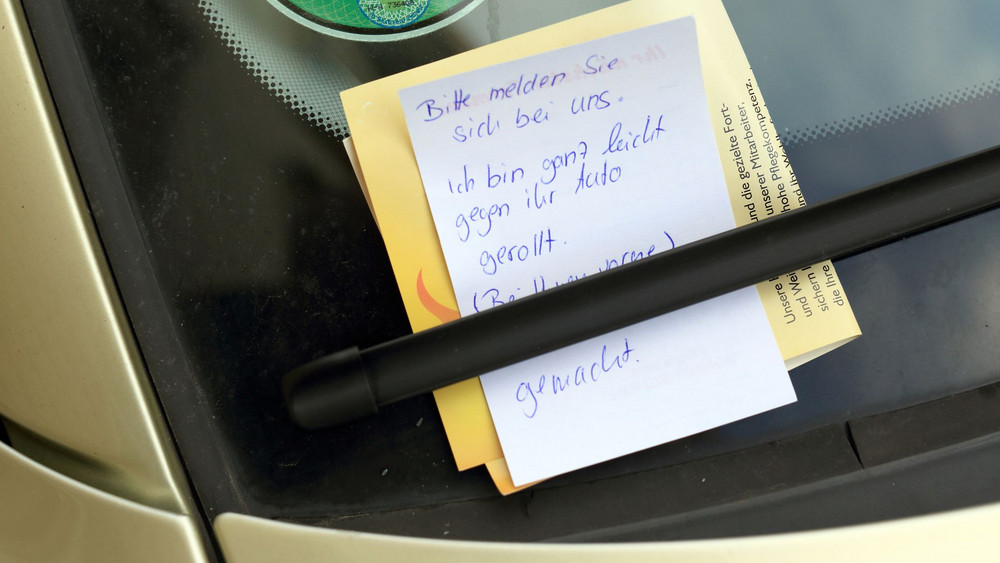 Bitte melden Sie
sich bei uns.
Ich bin ganz leicht
gegen ihr Auto
gerollt.
(Bei Ihnen vorne)
gemacht.
und die gezielte Fort-
unserer Mitarbeiter,
hohe Pflegekompetenz.
und Ihr
Unsere
und Wei
sichern
die Ihre